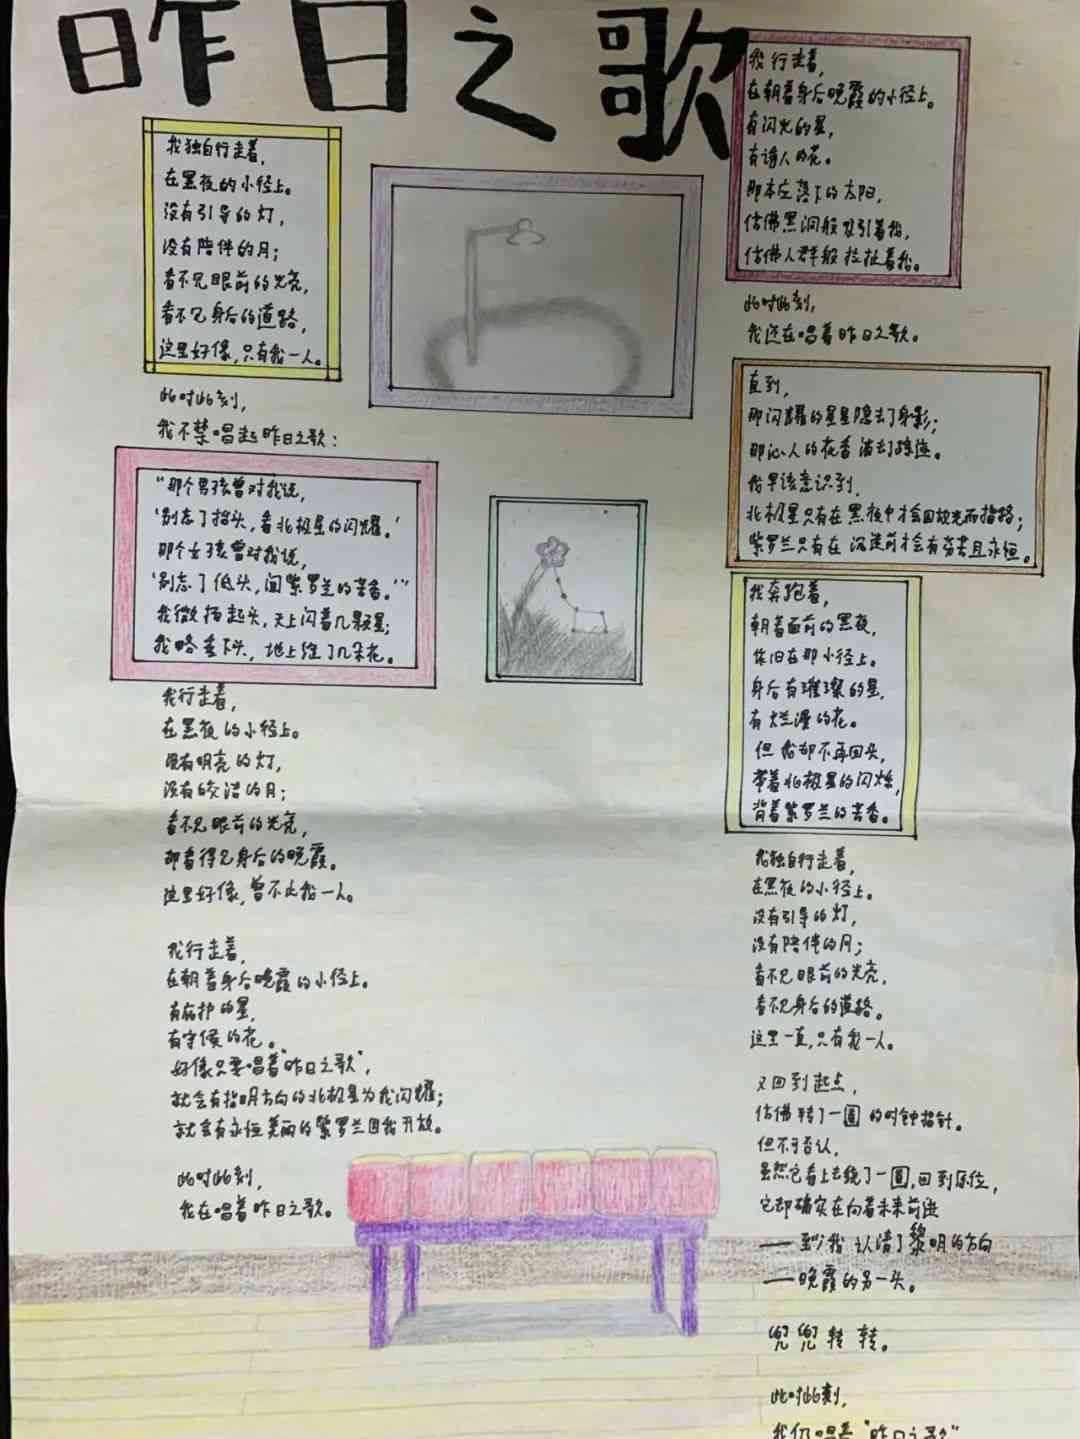 昨日之歌
我独自行走着，
在黑夜的小径上。
没有引导的灯，
没有陪伴的月；
看不见眼前的光亮，
看不见身后的道路，
这里好像，只有我一人。
此时此刻，
我不禁唱起昨日之歌：
“那个男孩曾对我说，
‘别忘了抬头，看北极星的闪耀。’
那个女孩曾对我说，
‘别忘了低头，闻紫罗兰的芳香。’”
我微扬起头，天上闪着几颗星；
我略垂下头，地上绽了几朵花。
我行走着，
在黑夜的小径上。
没有明亮的灯，
没有皎洁的月；
看不见眼前的光亮，
却看得见身后的晚霞。
这里好像，曾不止我一人。
我行走着，
在朝着身后晚霞的小径上。
有庇护的星，
有守候的花。
好像只要唱着“昨日之歌”，
就会有指明方向的北极星为我闪耀；
就会有永恒美丽的紫罗兰因我开放。
此时此刻，
我在唱着昨日之歌。
我行走着，
在朝着身后晚霞的小径上。
有闪光的星，
有诱人的花。
那本应落下的太阳，
仿佛黑洞般吸引着我，
仿佛人群般拉扯着我。
此时此刻，
我还在唱着昨日之歌。
直到，
那闪耀的星星隐去了身影；
那沁人的花香消去了踪迹。
我早该意识到，
北极星只有在黑夜中才会因放光而指路；
紫罗兰只有在沉迷前才会有芳芳且永恒。
我奔跑着，
朝着面前的黑夜，
依旧在那小径上。
身后有璀璨的星，
有烂漫的花。
但我却不再回头，
带着北极星的闪烁，
背着紫罗兰的芳香。
我独自行走着，
在黑夜的小径上。
没有引导的灯，
没有陪伴的月；
看不见眼前的光亮，
看不见身后的道路。
这里一直，只有我一人。
又回到起点，
仿佛转了一圆的时钟指针。
但不可否认，
虽然它看上去绕了一圆，回到原位，
它却确实在向着未来前进
——到少我认清了黎明的方向
——晚霞的另一头。
兜兜转转。
此时此刻，
我仍唱着“昨日之歌”